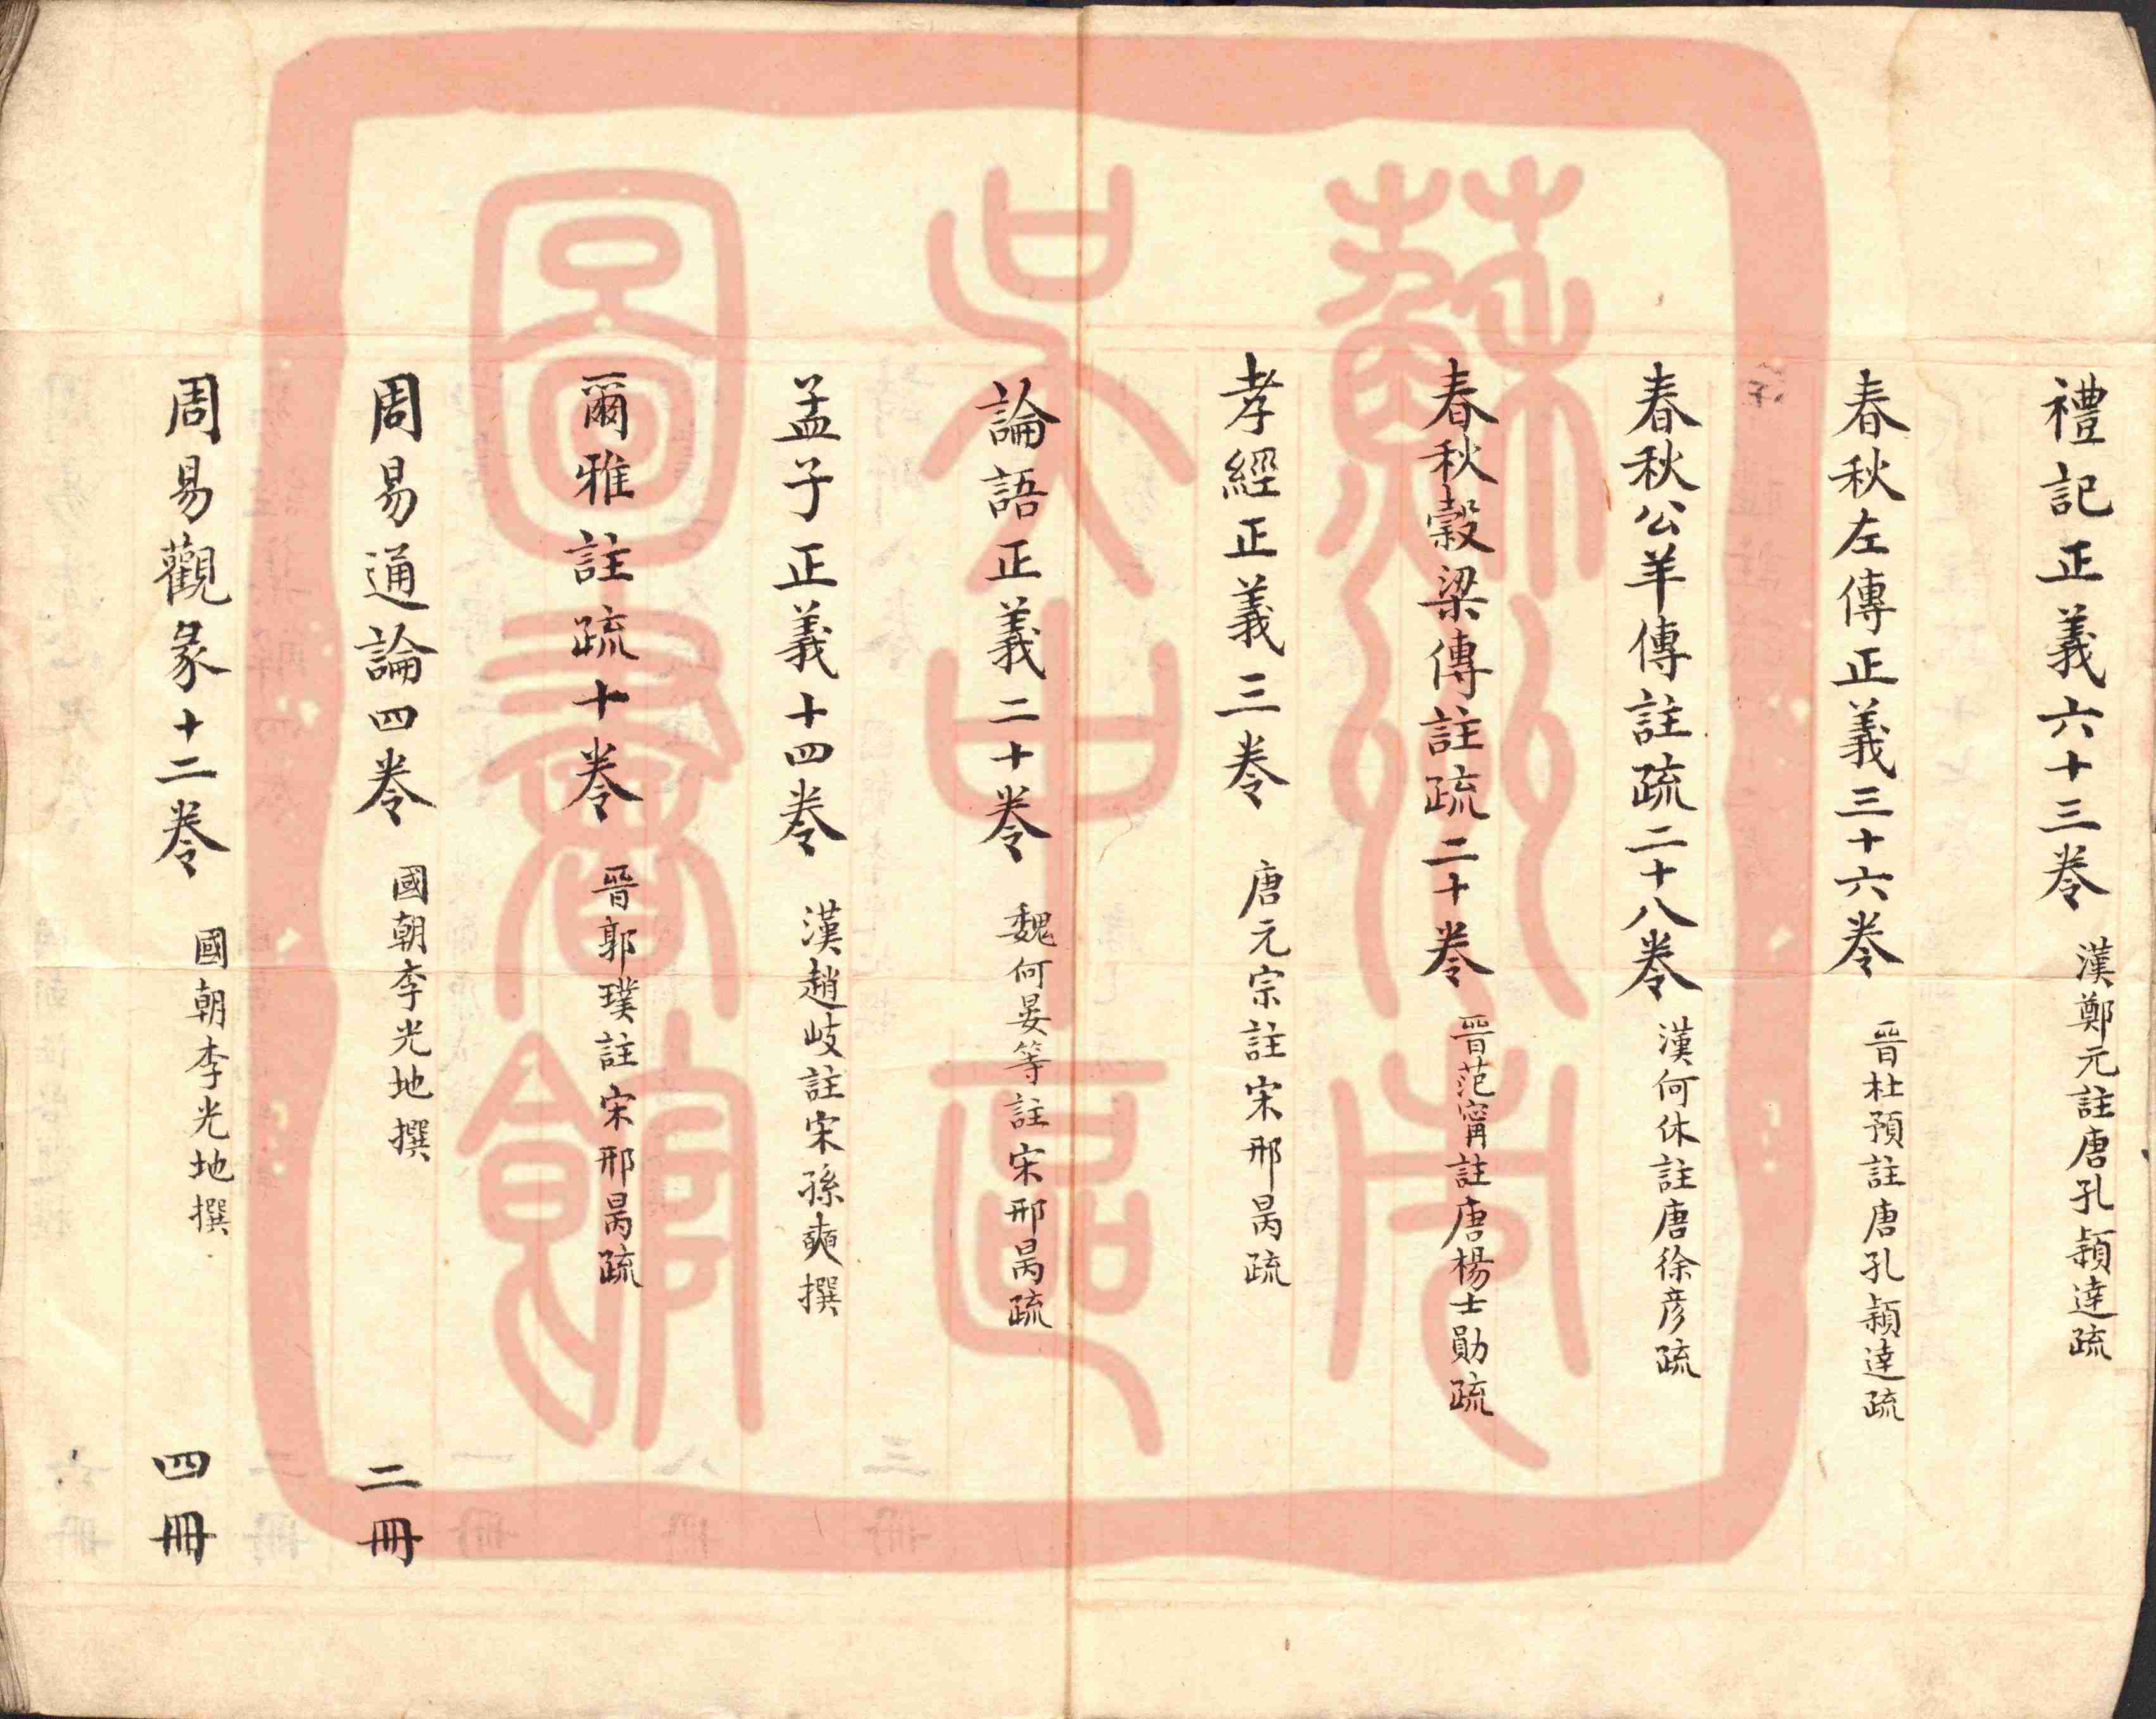 禮記正義六十三卷 漢鄭元註唐孔穎達疏
春秋左傳正義三十六卷 晉杜預註唐孔穎達疏
春秋公羊傳註疏二十八卷 漢何休註唐徐彦疏
春秋穀梁傳註疏二十卷 晉范甯註唐楊士勛疏
孝經正義三卷 唐元宗註宋邢昺疏
論語正義二十卷 魏何晏等註宋邢昺疏
孟子正義十四卷 漢趙岐註宋孫奭撰
爾雅註疏十卷 晉郭璞註宋邢昺疏
周易通論四卷 國朝李光地撰 二冊
周易觀彖十二卷 國朝李光地撰 四冊
蘇州市
吳中區
圖書館